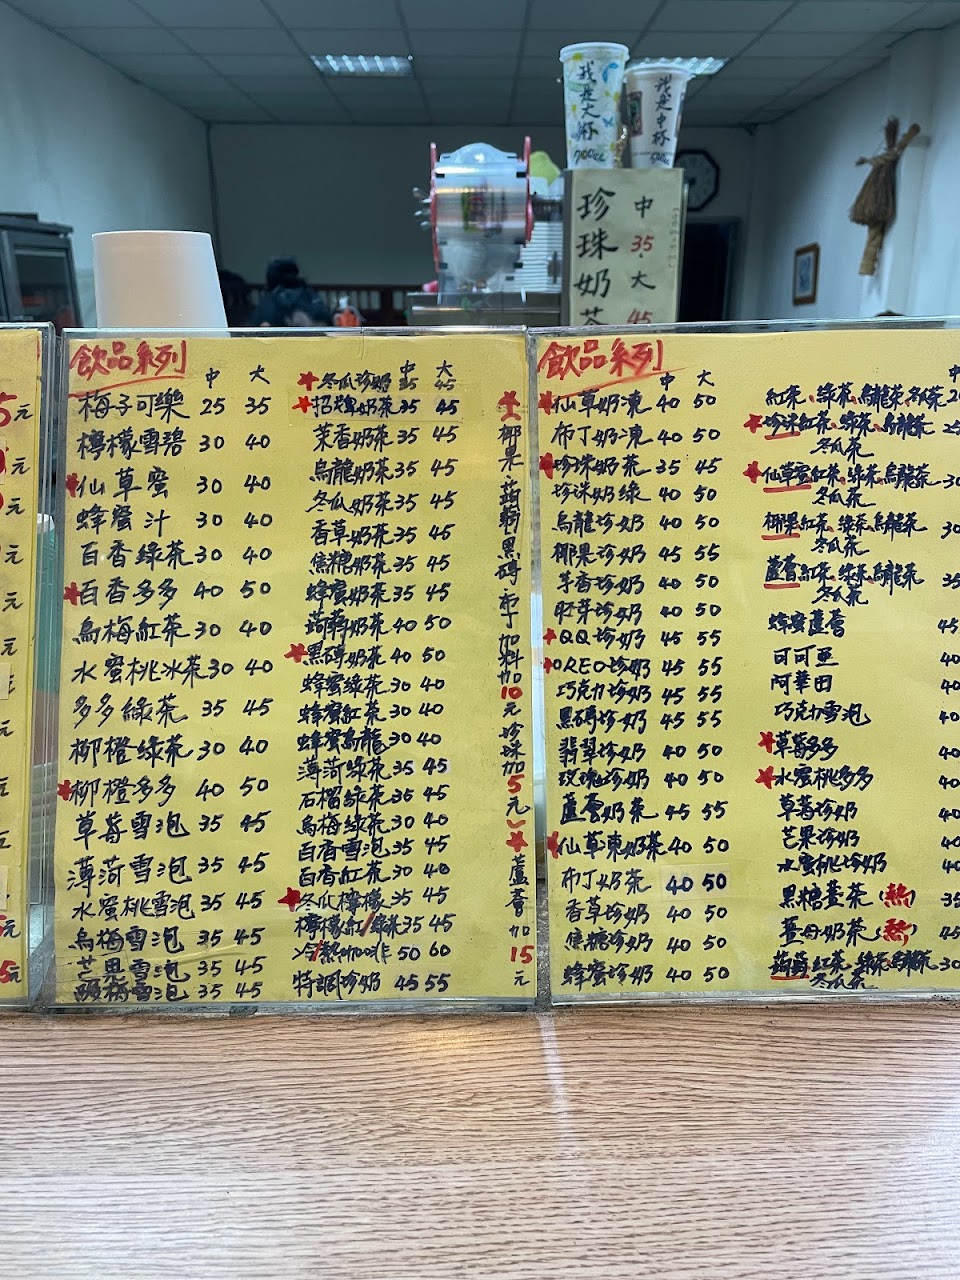 我是大杯
700cc
我是中杯
500cc
珍珠奶茶
中
35.
大
45
5元
元
元
元
元
元
5元
飲品系列
中 大
梅子可樂 25 35
檸檬雪碧 30 40
★仙草蜜 30 40
蜂蜜汁 30 40
百香綠茶 30 40
★百香多多 40 50
烏梅紅茶 30 40
水蜜桃冰茶 30 40
多多綠茶 35 45
柳橙綠茶 30 40
★柳橙多多 40 50
草莓雪泡 35 45
薄荷雪泡 35 45
水蜜桃雪泡 35 45
烏梅雪泡 35 45
芒果雪泡 35 45
酸梅雪泡 35 45
中 大
★冬瓜珍奶 35 45
★招牌奶茶 35 45
茉香奶茶 35 45
烏龍奶茶 35 45
冬瓜奶茶 35 45
香草奶茶 35 45
焦糖奶茶 35 45
蜂蜜奶茶 35 45
蒟蒻奶茶 40 50
★黑磚奶茶 40 50
蜂蜜綠茶 30 40
蜂蜜紅茶 30 40
蜂蜜烏龍 30 40
薄荷綠茶 35 45
石榴綠茶 35 45
烏梅綠茶 30 40
百香雪泡 35 45
百香紅茶 30 40
★冬瓜檸檬 35 45
檸檬紅/綠茶 35 45
冷/熱咖啡 50 60
特調珍奶 45 55
★椰果、蒟蒻、黑磚、布丁加料加10元珍珠加5元
★蘆薈加15元
飲品系列
中 大
★仙草奶凍 40 50
布丁奶凍 40 50
★珍珠奶茶 40 50
珍珠奶綠 40 50
烏龍珍奶 40 50
椰果珍奶 45 55
芋香珍奶 40 50
胚芽珍奶 40 50
★QQ珍奶 45 55
★OREO珍奶 45 55
巧克力珍奶 45 55
黑磚珍奶 45 55
翡翠珍奶 40 50
玫瑰珍奶 40 50
蘆薈奶茶 45 55
★仙草凍奶茶 40 50
布丁奶茶 40 50
香草珍奶 40 50
焦糖珍奶 40 50
蜂蜜珍奶 40 50
中
紅茶、綠茶、烏龍茶、冬瓜茶 20
★珍珠紅茶、綠茶、烏龍茶 25
冬瓜茶
★仙草蜜紅茶、綠茶、烏龍茶 30
冬瓜茶
椰果紅茶、綠茶、烏龍茶 30
冬瓜茶
蘆薈紅茶、綠茶、烏龍茶 35
冬瓜茶
蜂蜜蘆薈 45
可可亞 40
阿華田 40
巧克力雪泡 40
★草莓多多 40
★水蜜桃多多 40
草莓珍奶 40
芒果珍奶 40
水蜜桃珍奶 40
黑糖薑茶(熱) 35
薑母奶茶(熱) 45
蒟蒻紅茶、綠茶、烏龍茶 30
冬瓜茶